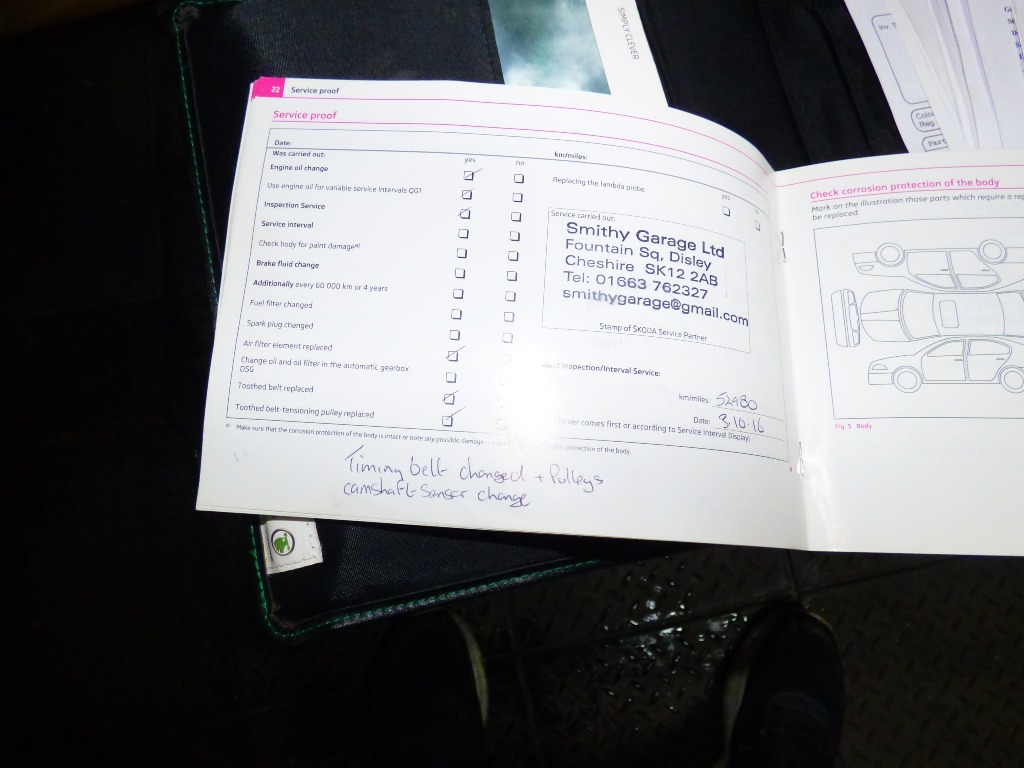 SIMPLY CLEVER
22 Service proof
Service proof
Date:
km/miles:
Was carried out:
yes no
Engine oil change
Use engine oil for variable service intervals QG1
Inspection Service
Service interval
Check body for paint damage a)
Brake fluid change
Additionally every 60 000 km or 4 years
Fuel filter changed
Spark plug changed
Air filter element replaced
Change oil and oil filter in the automatic gearbox
DSG
Toothed belt replaced
Toothed belt-tensioning pulley replaced
Replacing the lambda probe
yes
Service carried out:
Smithy Garage Ltd
Fountain Sq, Disley
Cheshire SK12 2AB
Tel: 01663 762327
smithygarage@gmail.com
Stamp of ŠKODA Service Partner
Inspection/Interval Service:
km/miles: 52980
Date: 3.10.16
comes first or according to Service Interval Display)
a) Make sure that the corrosion protection of the body is intact or note any possible damage
protection of the body.
Timing belt changed + Pulleys
camshaft sensor change
Check corrosion protection of the body
Mark on the illustration those parts which require a
be replaced.
Fig. 5 Body
Inv. T
Reg.
Part